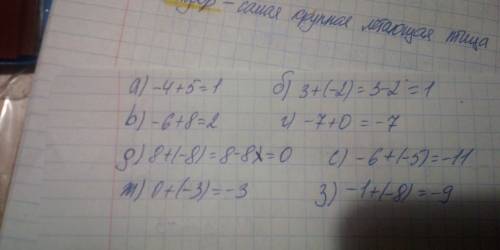 – самая крупная летающая птица
а) -4+5=1 б) 3+(-2)=3-2=1
в) -6+8=2 г) -7+0=-7
д) 8+(-8)=8-8=0 е) -6+(-5)=-11
ж) 0+(-3)=-3 з) -1+(-8)=-9